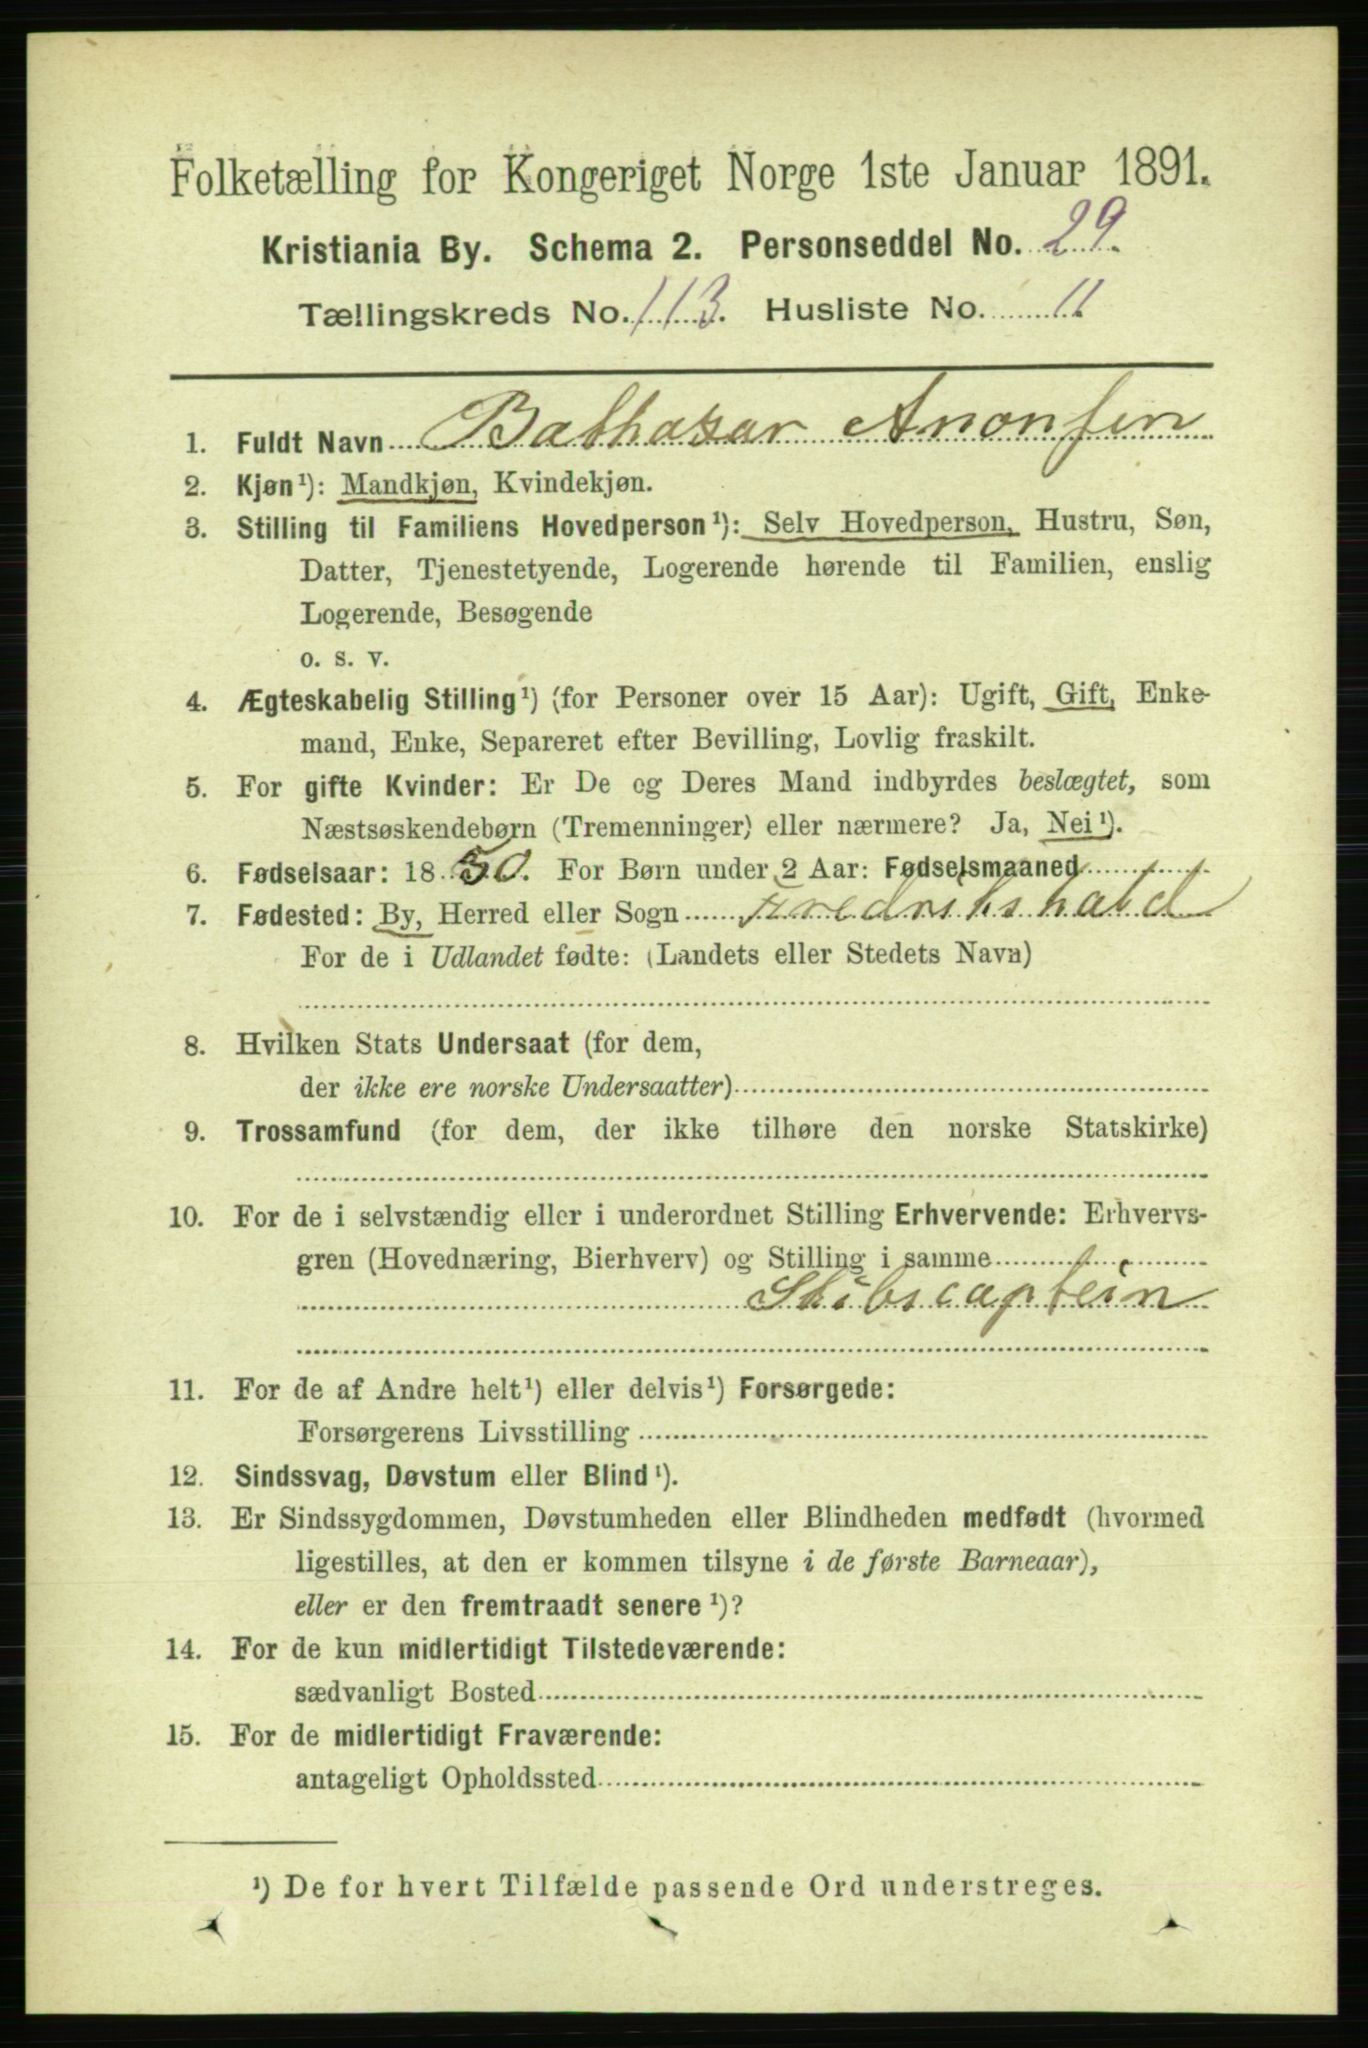 Folketælling for Kongeriget Norge 1ste Januar 1891.
Kristiania By. Schema 2. Personseddel No. 29.
Tællingskreds No. 113. Husliste No. 11.
1. Fuldt Navn Balthasar Anonsen
2. Kjøn¹): Mandkjøn, Kvindekjøn.
3. Stilling til Familiens Hovedperson¹): Selv Hovedperson, Hustru, Søn,
Datter, Tjenestetyende, Logerende hørende til Familien, enslig
Logerende, Besøgende
o. s. v.
4. Ægteskabelig Stilling¹) (for Personer over 15 Aar): Ugift, Gift, Enke-
mand, Enke, Separeret efter Bevilling, Lovlig fraskilt.
5. For gifte Kvinder: Er De og Deres Mand indbyrdes beslægtet, som
Næstsøskendebørn (Tremenninger) eller nærmere? Ja, Nei¹).
6. Fødselsaar: 1850. For Børn under 2 Aar: Fødselsmaaned
7. Fødested: By, Herred eller Sogn Fredrikshald
For de i Udlandet fødte: (Landets eller Stedets Navn)
8. Hvilken Stats Undersaat (for dem,
der ikke ere norske Undersaatter)
9. Trossamfund (for dem, der ikke tilhøre den norske Statskirke)
10. For de i selvstændig eller i underordnet Stilling Erhvervende: Erhvervs-
gren (Hovednæring, Bierhverv) og Stilling i samme
Skibscaptein
11. For de af Andre helt¹) eller delvis¹) Forsørgede:
Forsørgerens Livsstilling
12. Sindssvag, Døvstum eller Blind¹).
13. Er Sindssygdommen, Døvstumheden eller Blindheden medfødt (hvormed
ligestilles, at den er kommen tilsyne i de første Barneaar),
eller er den fremtraadt senere¹)?
14. For de kun midlertidigt Tilstedeværende:
sædvanligt Bosted
15. For de midlertidigt Fraværende:
antageligt Opholdssted
¹) De for hvert Tilfælde passende Ord understreges.